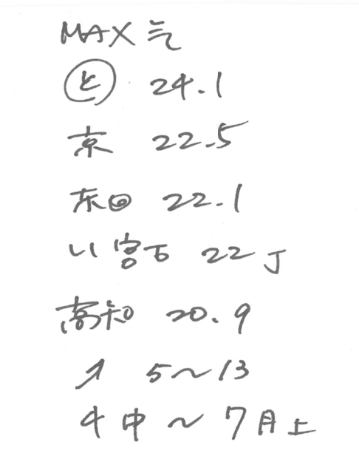 MAX気
と 24.1
京 22.5
东回 22.1
い宮古 22J
高知 20.9
↗ 5〜13
4中〜7月上